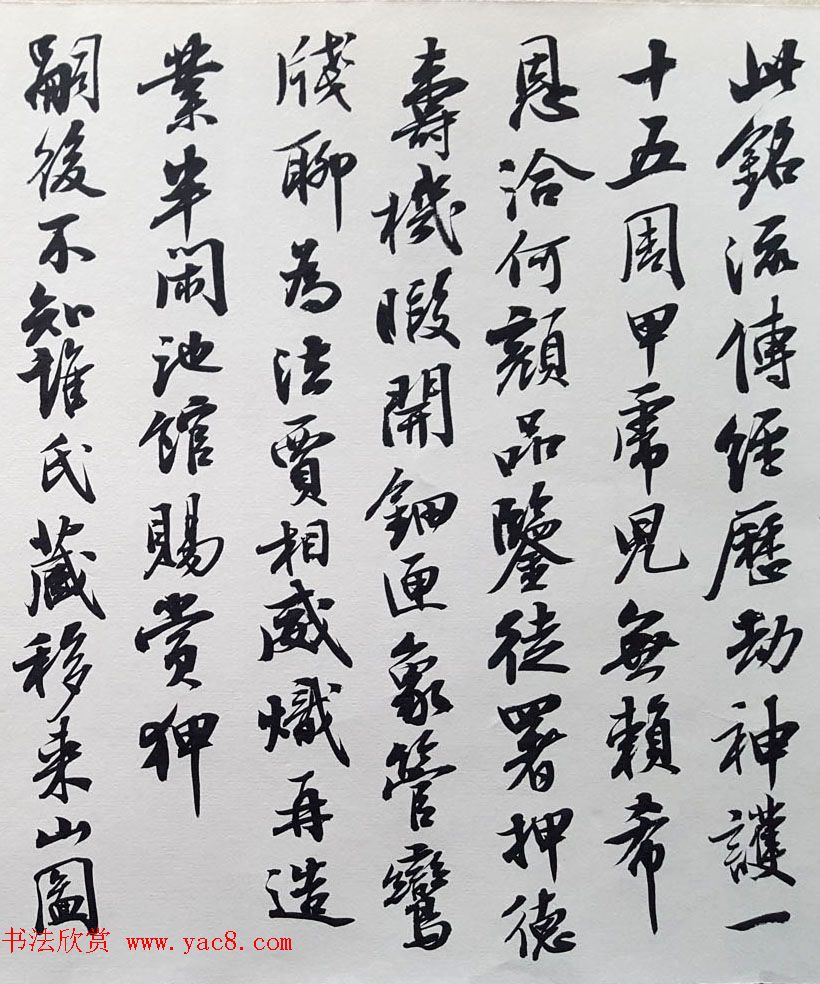 此銘流傳經歷劫神護一
十五周甲虎兒無賴希
恩洽何顏品鑒徒署押德
壽機暇開鈿匣象管鸞
牋聊為法賈相威熾再造
業半閑池館賜賞狎
嗣後不知誰氏藏移來山圖
书法欣赏 www.yac8.com